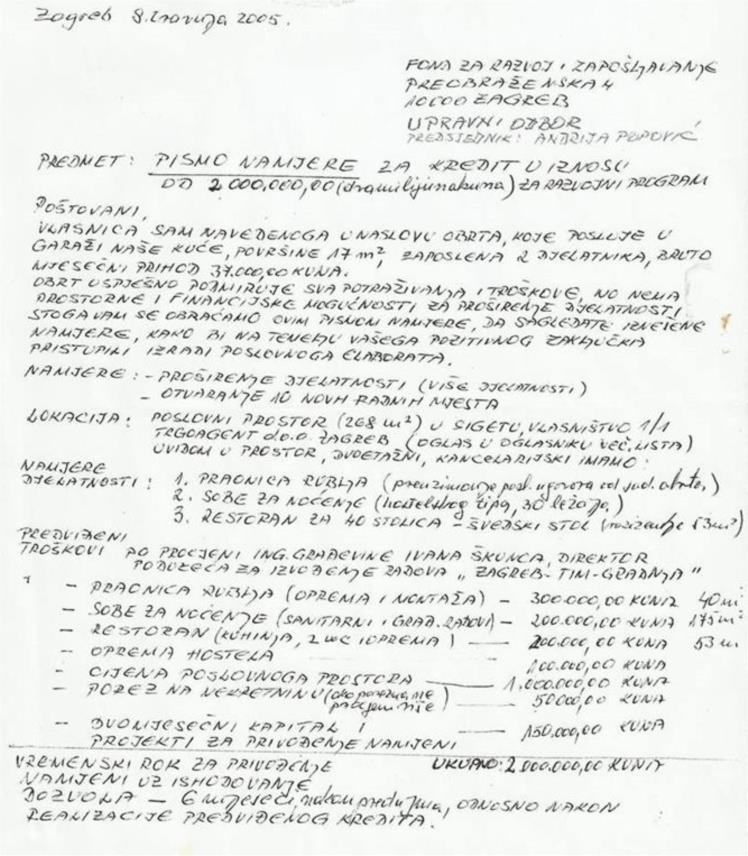 Zagreb 8. travnja 2005.
FOND ZA RAZVOJ I ZAPOŠLJAVANJE
PREOBRAŽENSKA 4
10000 ZAGREB
UPRAVNI ODBOR
PREDSJEDNIK: ANDRIJA POPOVIĆ
PREDMET: PISMO NAMJERE ZA KREDIT U IZNOSU
OD 2.000.000,00 (dva milijuna kuna) ZA RAZVOJNI PROGRAM
POŠTOVANI,
VLASNICA SAM NAVEDENOGA U NASLOVU OBRTA, KOJE POSLUJE U
GARAŽI NAŠE KUĆE, POVRŠINE 17 m², ZAPOSLENA 2 DJELATNIKA, BRUTO
MJESEČNI PRIHOD 37.000,00 KUNA.
OBRT USPJEŠNO PODMIRUJE SVA POTRAŽIVANJA I TROŠKOVE, NO NEMA
PROSTORNE I FINANCIJSKE MOGUĆNOSTI ZA PROŠIRENJE DJELATNOSTI
STOGA VAM SE OBRAĆAMO OVIM PISMOM NAMJERE, DA SAGLEDATE IZNEŠENE
NAMJERE, KAKO BI NA TEMELJU VAŠEGA POZITIVNOG ZAKLJUČKA
PRISTUPILI IZRADI POSLOVNOGA ELABORATA.
NAMJERE: - PROŠIRENJE DJELATNOSTI (VIŠE DJELATNOSTI)
- OTVARANJE 10 NOVIH RADNIH MJESTA
LOKACIJA: POSLOVNI PROSTOR (268 m²) U SIGETU, VLASNIŠTVO 1/1
TRGOAGENT d.o.o. ZAGREB (OGLAS U OGLASNIKU VEČ. LISTA)
UVIDOM U PROSTOR, DVOETAŽNI, KANCELARIJSKI IMAMO:
NAMJERE
DJELATNOSTI: 1. PRAONICA RUBLJA (preuzimanje posl. ugovora od sad. obrta)
2. SOBE ZA NOĆENJE (hostelskog tipa, 30 ležaja)
3. RESTORAN ZA 40 STOLICA - ŠVEDSKI STOL (53 m²)
PREDVIĐENI
TROŠKOVI PO PROCJENI ING. GRAĐEVINE IVANA ŠKUNCA, DIREKTOR
PODUZEĆA ZA IZVOĐENJE RADOVA "ZAGREB-TIM-GRADNJA"
- PRAONICA RUBLJA (OPREMA I MONTAŽA) - 300.000,00 KUNA 40 m²
- SOBE ZA NOĆENJE (SANITARNI I GRAĐ. RADOVI) - 200.000,00 KUNA 175 m²
- RESTORAN (KUHINJA, 2 WC I OPREMA) - 200.000,00 KUNA 53 m
- OPREMA HOSTELA 100.000,00 KUNA
- CIJENA POSLOVNOGA PROSTORA - 1.000.000,00 KUNA
- POREZ NA NEKRETNINU (ako porezna ne procjeni više) - 50000,00 KUNA
- DVOMJESEČNI KAPITAL I - 150.000,00 KUNA
PROJEKTI ZA PRIVOĐENJE NAMJENI
UKUPNO: 2.000.000,00 KUNA
VREMENSKI ROK ZA PRIVOĐENJE
NAMJENI UZ ISHODOVANJE
DOZVOLA - 6 mjeseci, nakon predujma, ODNOSNO NAKON
REALIZACIJE PREDVIĐENOG KREDITA.